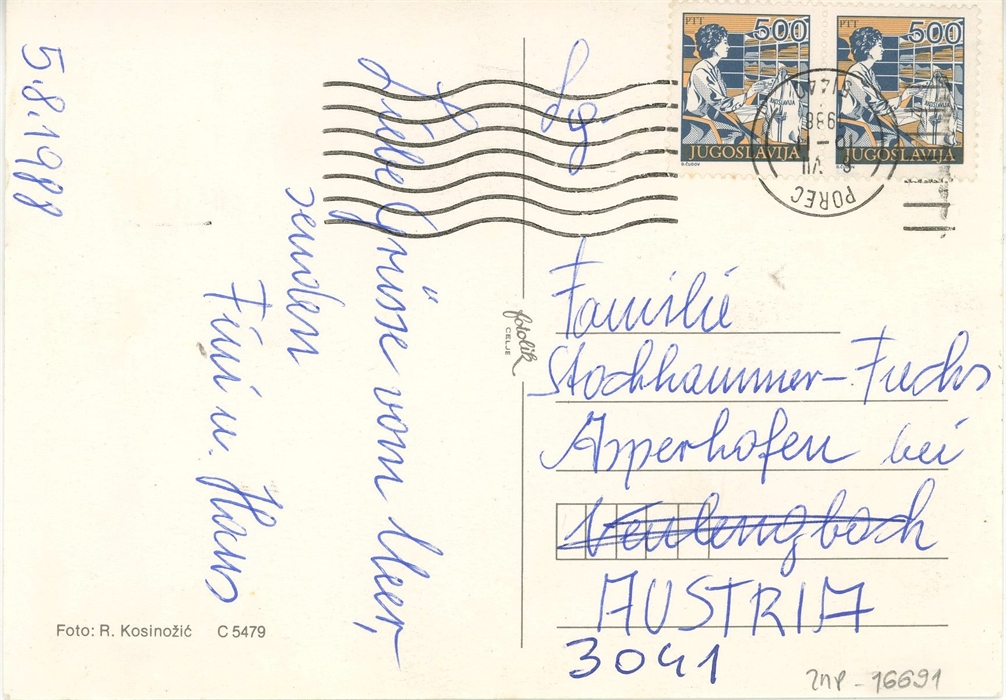 5.8.1988
Liebe Grüsse vom Meer,
senden
Fini u. Hans
Foto: R. Kosinožić C 5479
fotolik
CELJE
PTT 500
JUGOSLAVIJA
PTT 500
JUGOSLAVIJA
POREČ
Familie
Stockhammer-Fuchs
Asperhofen bei
Neulengbach
AUSTRIA
3041
ZNP-16691